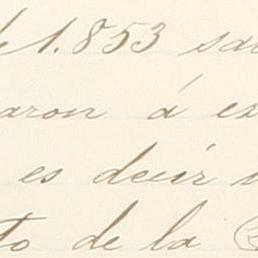 de 1.853 sa
aron á es
es decir
to de la